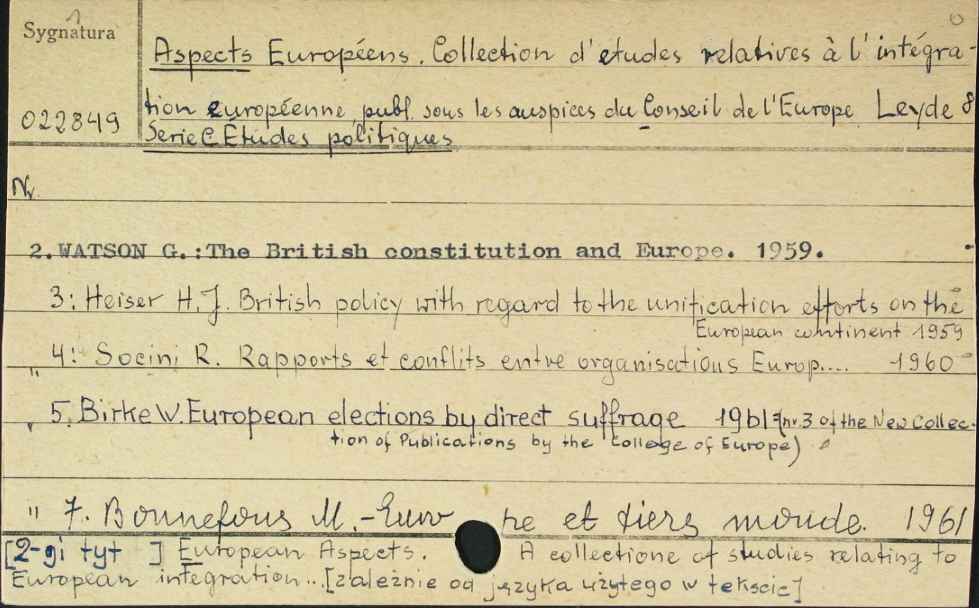 Sygnatura
Aspects Européens. Collection d'etudes relatives à l'intégra-
022849
tion européenne publ. sous les auspices du Conseil de l'Europe Leyde 8
Serie C Études politiques
Nr.
2. WATSON G.:The British constitution and Europe. 1959.
3: Heiser H.J. British policy with regard to the unification efforts on the
European continent 1959
4: Socini R. Rapports et conflits entre organisations Europ.... 1960
"
5. Birke W. European elections by direct suffrage 1961 (nr. 3 of the New Collec-
tion of Publications by the College of Europe)
" 7. Bonnefous M.-Euro pe et tiers monde. 1961
[2-gi tyt ] European Aspects. A collectione of studies relating to
European integration...[zależnie od języka użytego w tekscie]